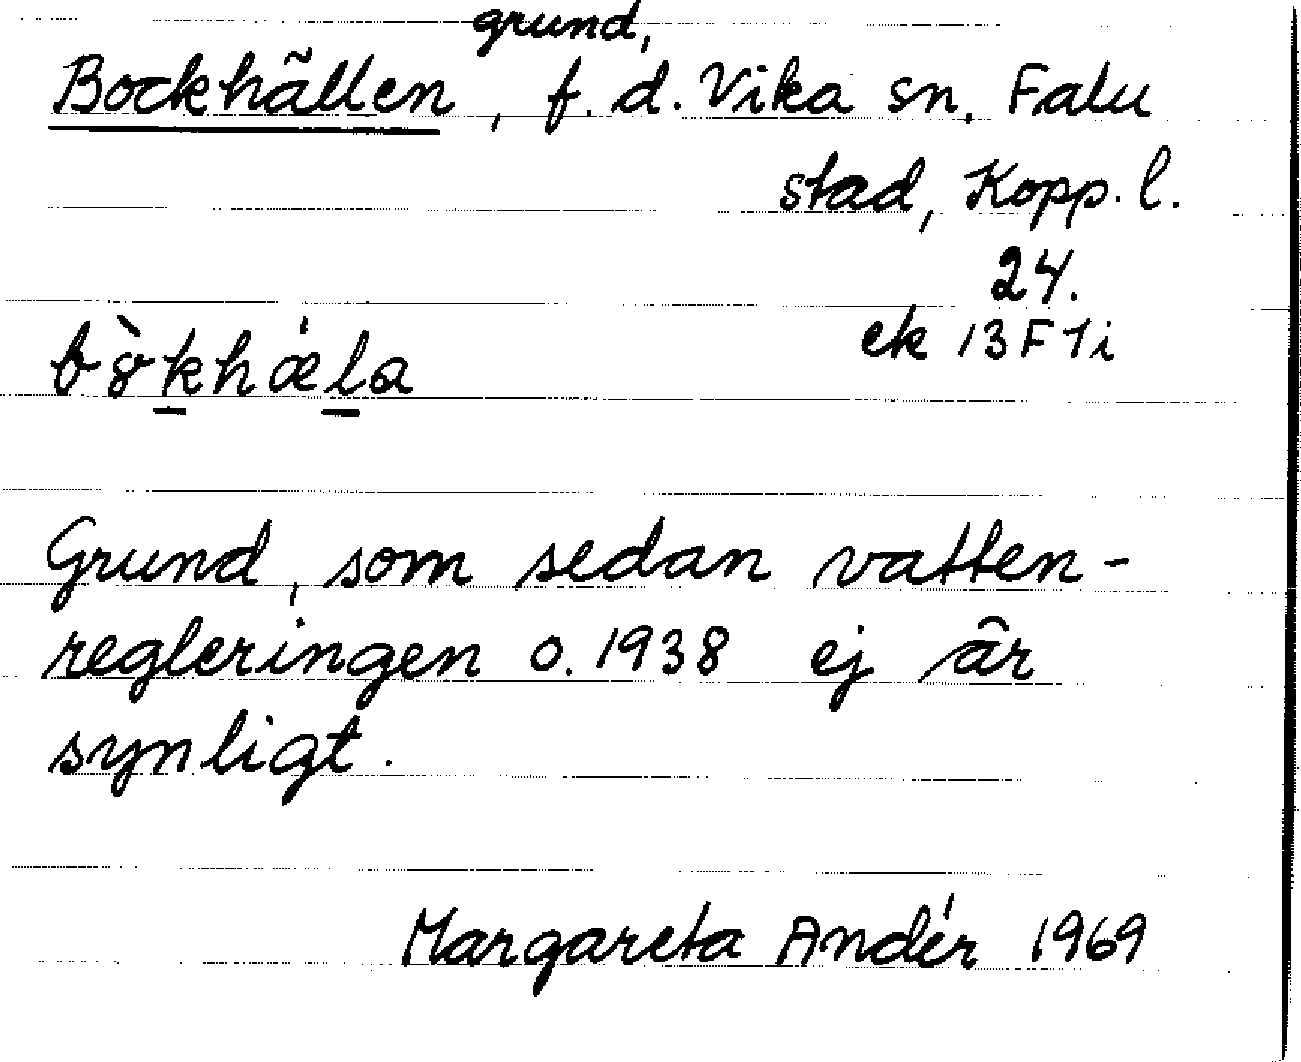 grund,
Bockhällen, f. d. Vika sn, Falu
stad, Kopp. l.
24.
ek 13F1i
bòkhǽla
Grund, som sedan vatten-
regleringen o. 1938 ej är
synligt.
Margareta Andér 1969